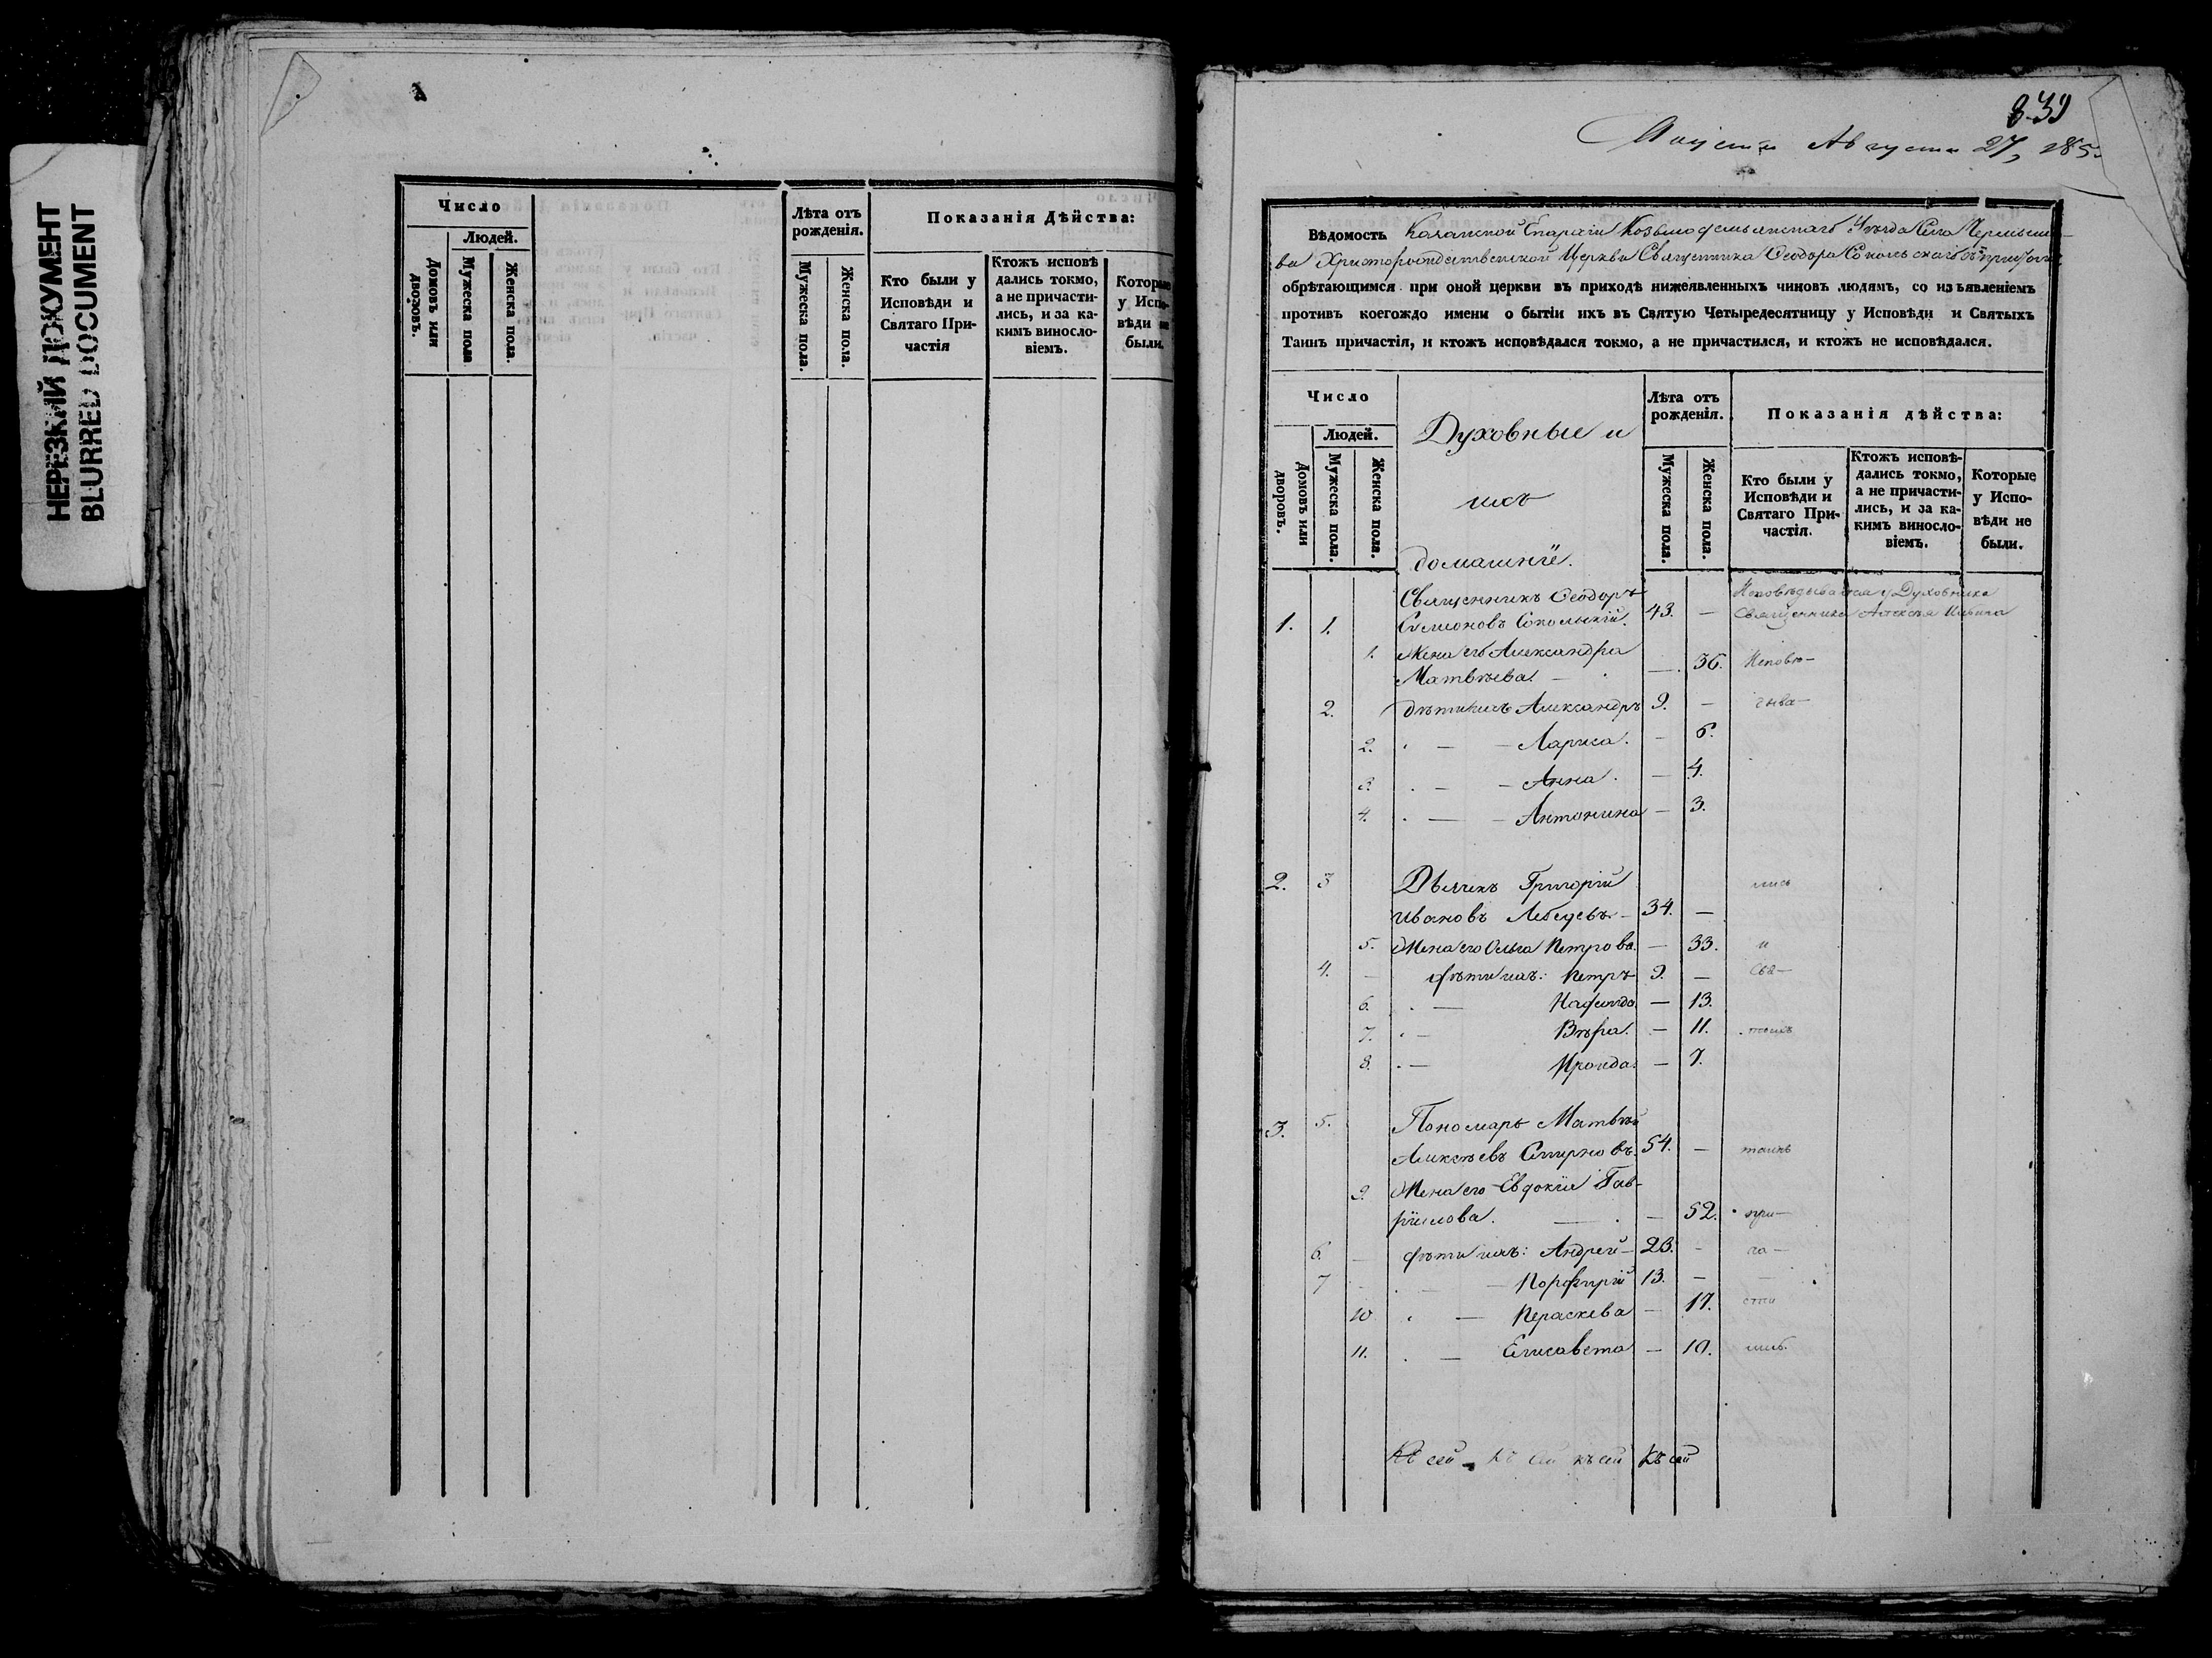 НЕРЕЗКИЙ ДОКУМЕНТ
BLURRED DOCUMENT
Число
Людей.
Домовъ или дворовъ.
Мужеска пола
Женска пола.
Лѣта отъ рожденія.
Мужеска пола.
Женска пола.
Показанія Дѣйства:
Кто были у Исповѣди и Святаго Причастія
Ктожъ исповѣдались токмо, а не причастились, и за какимъ винословіемъ.
Которые у Исповѣди не были.
839
Августа 27, 185
Вѣдомость Казанской Епархіи Козьмодемьянскаго Уѣзда Села
ва Христорождественской Церкви Священника Ѳеодора Сокольскаго съ
обрѣтающимся при оной церкви въ приходѣ нижеявленныхъ чиновъ людямъ, со изъявленіемъ
противъ коегождо имени о бытіи ихъ въ Святую Четыредесятницу у Исповѣди и Святыхъ
Таинъ причастія, и ктожъ исповѣдался токмо, а не причастился, и ктожъ не исповѣдался.
Число
Людей.
Домовъ или дворовъ.
Мужеска пола.
Женска пола.
Духовные и
ихъ
домашніе.
Лѣта отъ рожденія.
Мужеска пола.
Женска пола.
Показанія дѣйства:
Кто были у Исповѣди и Святаго Причастія.
Ктожъ исповѣдались токмо, а не причастились, и за какимъ винословіемъ.
Которые у Исповѣди не были.
Священникъ Ѳеодоръ Исповѣдывался у Духовника
1. 1. Симеоновъ Сокольскій. 43. — Священника Алексѣя
1. Жена его Александра
Матвѣева. — — 36. Исповѣ—
2. дѣти ихъ Александръ 9. — дыва—
2. — — Лариса. — 6.
3. — — Анна. — 4.
4. — — Антонина — 3.
2. 3 Дьячекъ Григорій лись
Ивановъ Лебедевъ — 34. —
5. Жена его Ольга Петрова. — 33. и
4. — дѣти ихъ: Петръ 9. — Свя—
6. — Надежда — 13.
7. — Вѣра. — 11. тыхъ
8. — Ираида. — 7.
3. 5. Пономарь Матвѣй
Алексѣевъ Смирновъ. 54. — таинъ
9. Жена его Евдокія Гав-
рилова. — — 52. при—
6. — дѣти ихъ: Андрей — 23. — ча—
7 — — Порфирій 13. —
10 — Пераскева — 17. сти
11. — Елисавета — 10. лись.
Къ сей къ сей къ сей Къ сей